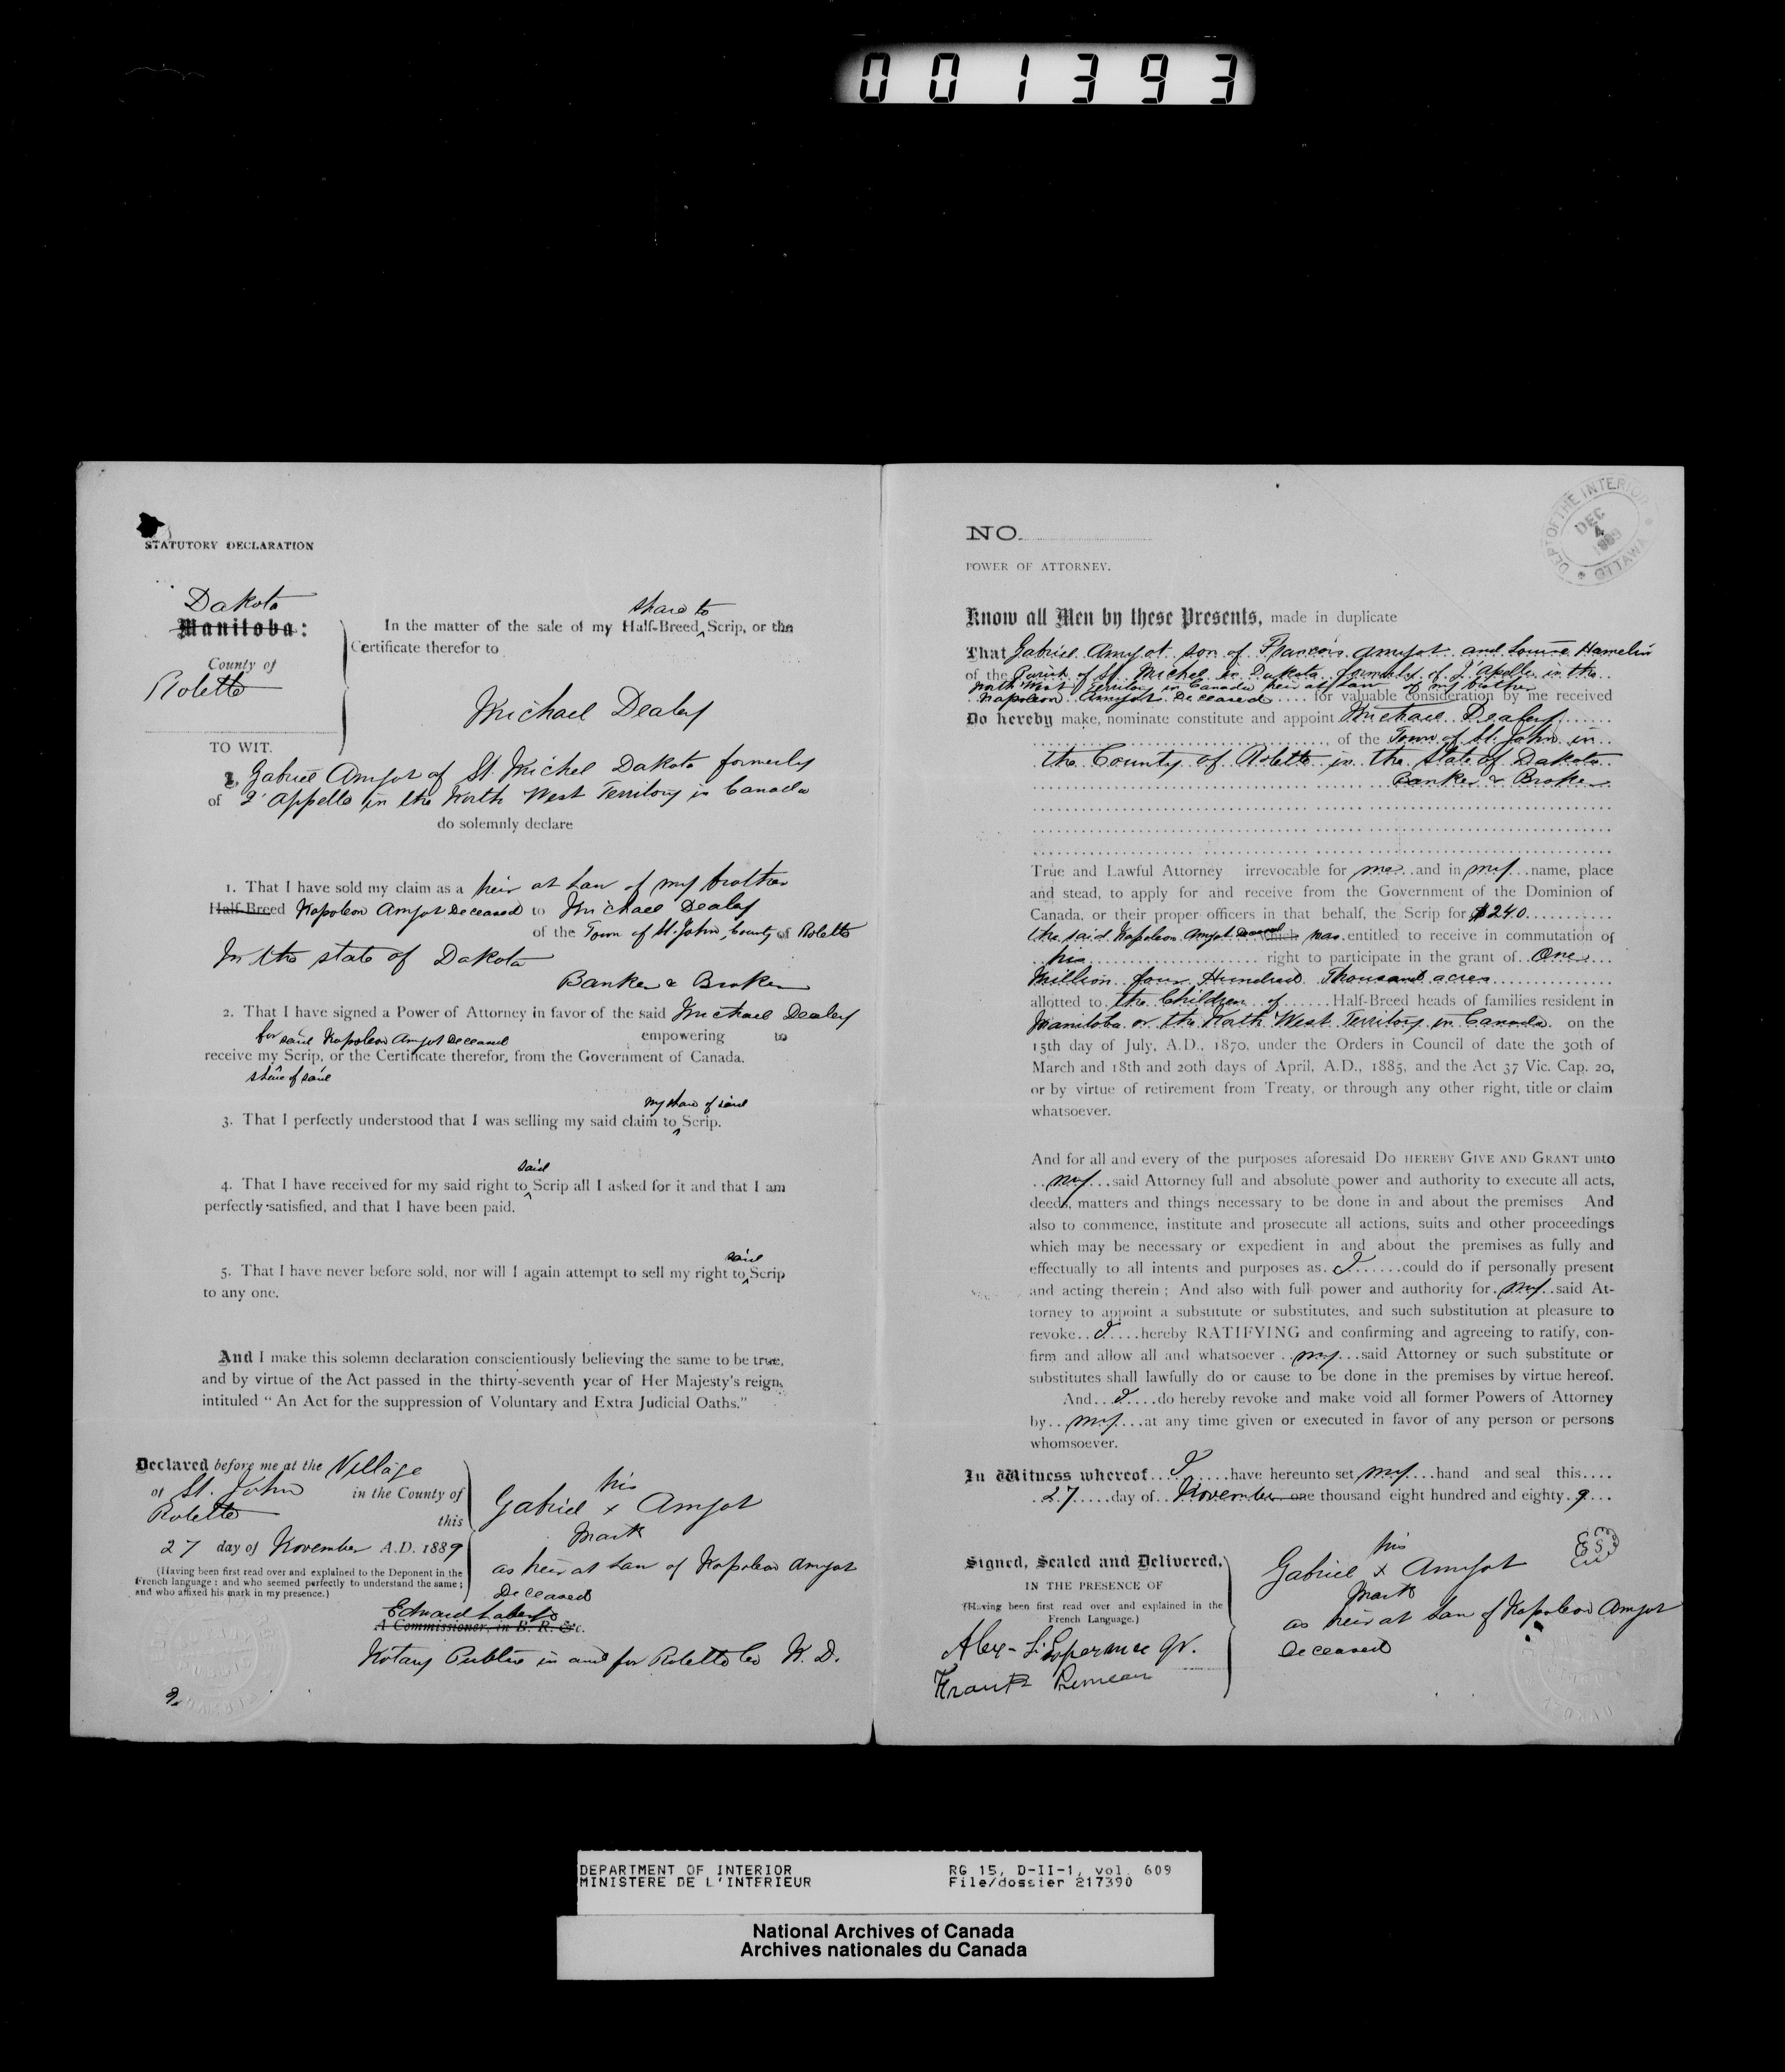 001393
STATUTORY DECLARATION
Dakota
Manitoba:
County of
Rolette
TO WIT.
share to
In the matter of the sale of my Half-Breed Scrip, or the
Certificate therefor to
Michael Dealey
I, Gabriel Amyot of St. Michel Dakota formerly
of Q'Appelle in the North West Territory in Canada
do solemnly declare
1. That I have sold my claim as a heir at Law of my brother
Half-Breed Napoleon Amyot Deceased to Michael Dealey
of the Town of St. John, County of Rolette
In the state of Dakota
Banker & Broker
2. That I have signed a Power of Attorney in favor of the said Michael Dealey
for said Napoleon Amyot Deceased empowering to
receive my Scrip, or the Certificate therefor, from the Government of Canada.
share of said
my share of said
3. That I perfectly understood that I was selling my said claim to Scrip.
said
4. That I have received for my said right to Scrip all I asked for it and that I am
perfectly satisfied, and that I have been paid.
said
5. That I have never before sold, nor will I again attempt to sell my right to Scrip
to any one.
And I make this solemn declaration conscientiously believing the same to be true,
and by virtue of the Act passed in the thirty-seventh year of Her Majesty's reign,
intituled "An Act for the suppression of Voluntary and Extra Judicial Oaths."
Declared before me at the Village
of St. John in the County of
Rolette this
27 day of November A.D. 1889
(Having been first read over and explained to the Deponent in the
French language; and who seemed perfectly to understand the same;
and who affixed his mark in my presence.)
his
Gabriel x Amyot
Mark
as heir at Law of Napoleon Amyot
Deceased
Edward
A Commissioner, in B. R. &c.
Notary Public in and for Rolette Co N. D.
NO.
POWER OF ATTORNEY.
DEPT OF THE INTERIOR
DEC
4
1889
OTTAWA
Know all Men by these Presents, made in duplicate
That Gabriel Amyot son of Francois Amyot and Louise Hamelin
of the Parish of St. Michel in Dakota formerly of Q'Appelle in the
North West Territory in Canada heir at Law of my brother
Napoleon Amyot Deceased for valuable consideration by me received
Do hereby make, nominate constitute and appoint Michael Dealey
of the Town of St. John in
the County of Rolette in the State of Dakota
Banker & Broker
True and Lawful Attorney irrevocable for me and in my name, place
and stead, to apply for and receive from the Government of the Dominion of
Canada, or their proper officers in that behalf, the Scrip for $240
the said Napoleon Amyot Deceased which was entitled to receive in commutation of
his right to participate in the grant of One
Million four Hundred Thousand acres
allotted to the Children of Half-Breed heads of families resident in
Manitoba or the North West Territory in Canada on the
15th day of July, A.D., 1870, under the Orders in Council of date the 30th of
March and 18th and 20th days of April, A.D., 1885, and the Act 37 Vic. Cap. 20,
or by virtue of retirement from Treaty, or through any other right, title or claim
whatsoever.
And for all and every of the purposes aforesaid DO HEREBY GIVE AND GRANT unto
my said Attorney full and absolute power and authority to execute all acts,
deeds, matters and things necessary to be done in and about the premises And
also to commence, institute and prosecute all actions, suits and other proceedings
which may be necessary or expedient in and about the premises as fully and
effectually to all intents and purposes as I could do if personally present
and acting therein; And also with full power and authority for my said At-
torney to appoint a substitute or substitutes, and such substitution at pleasure to
revoke I hereby RATIFYING and confirming and agreeing to ratify, con-
firm and allow all and whatsoever my said Attorney or such substitute or
substitutes shall lawfully do or cause to be done in the premises by virtue hereof.
And I do hereby revoke and make void all former Powers of Attorney
by my at any time given or executed in favor of any person or persons
whomsoever.
In Witness whereof I have hereunto set my hand and seal this
27 day of November one thousand eight hundred and eighty 9
Signed, Sealed and Delivered,
IN THE PRESENCE OF
(Having been first read over and explained in the
French Language.)
his
Gabriel x Amyot
Mark
as heir at Law of Napoleon Amyot
Deceased
DEPARTMENT OF INTERIOR
MINISTERE DE L'INTERIEUR
RG 15, D-II-1, vol. 609
File/dossier 217390
National Archives of Canada
Archives nationales du Canada